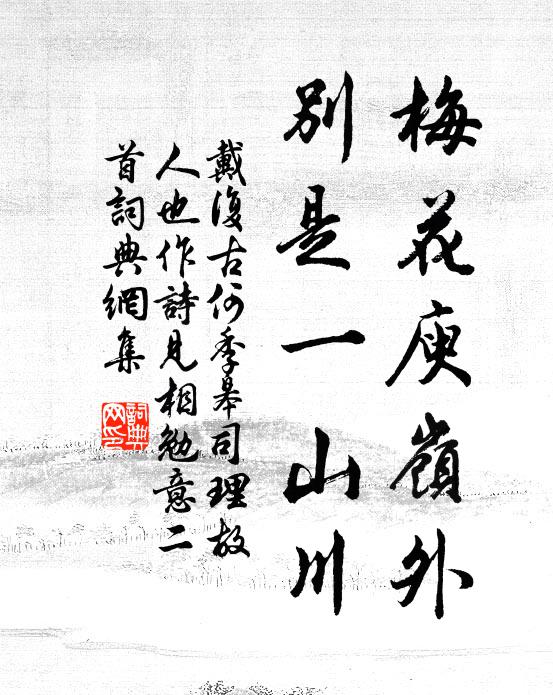 梅花庾嶺外
別是一山川
戴復古何季皋司理故
人也作詩見相勉意二
首詞典網集
詞典
网印